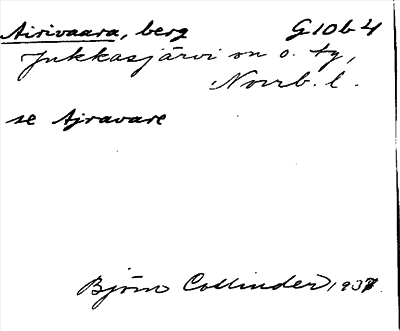 Airivaara, berg G10b4
Jukkasjärvi sn o. tg,
Norrb. l.
se Ajravare
Björn Collinder 1937.